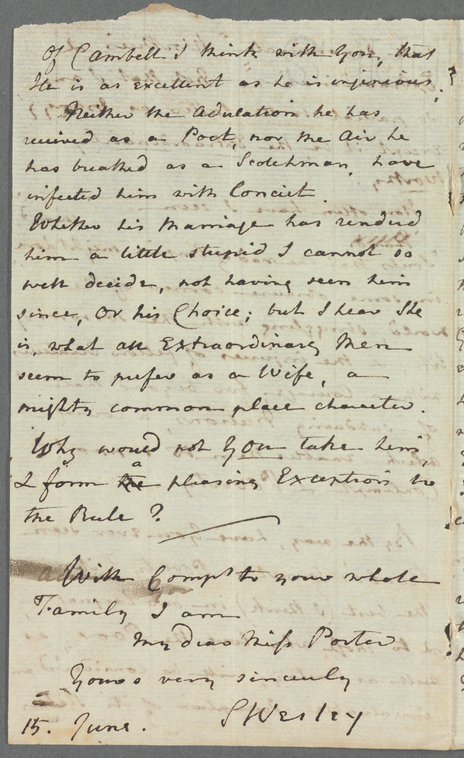 Of Cambell I think with You, that
He is as excellent as he is ingenious.
Neither the Adulation he has
received as a Poet, nor the Air he
has breathed as a Scotchman, have
infected him with Conceit.
Whether his Marriage has rendered
him a little stupid I cannot so
well decide, not having seen him
since, Or his Choice; but I hear She
is, what all Extraordinary Men
seem to prefer as a Wife, a
mighty common place character.
Why would not You take him,
& form the a pleasing Exception to
the Rule?
With Compts to your whole
Family I am
My dear Miss Porter
Yours very sincerely
15. June. SWesley